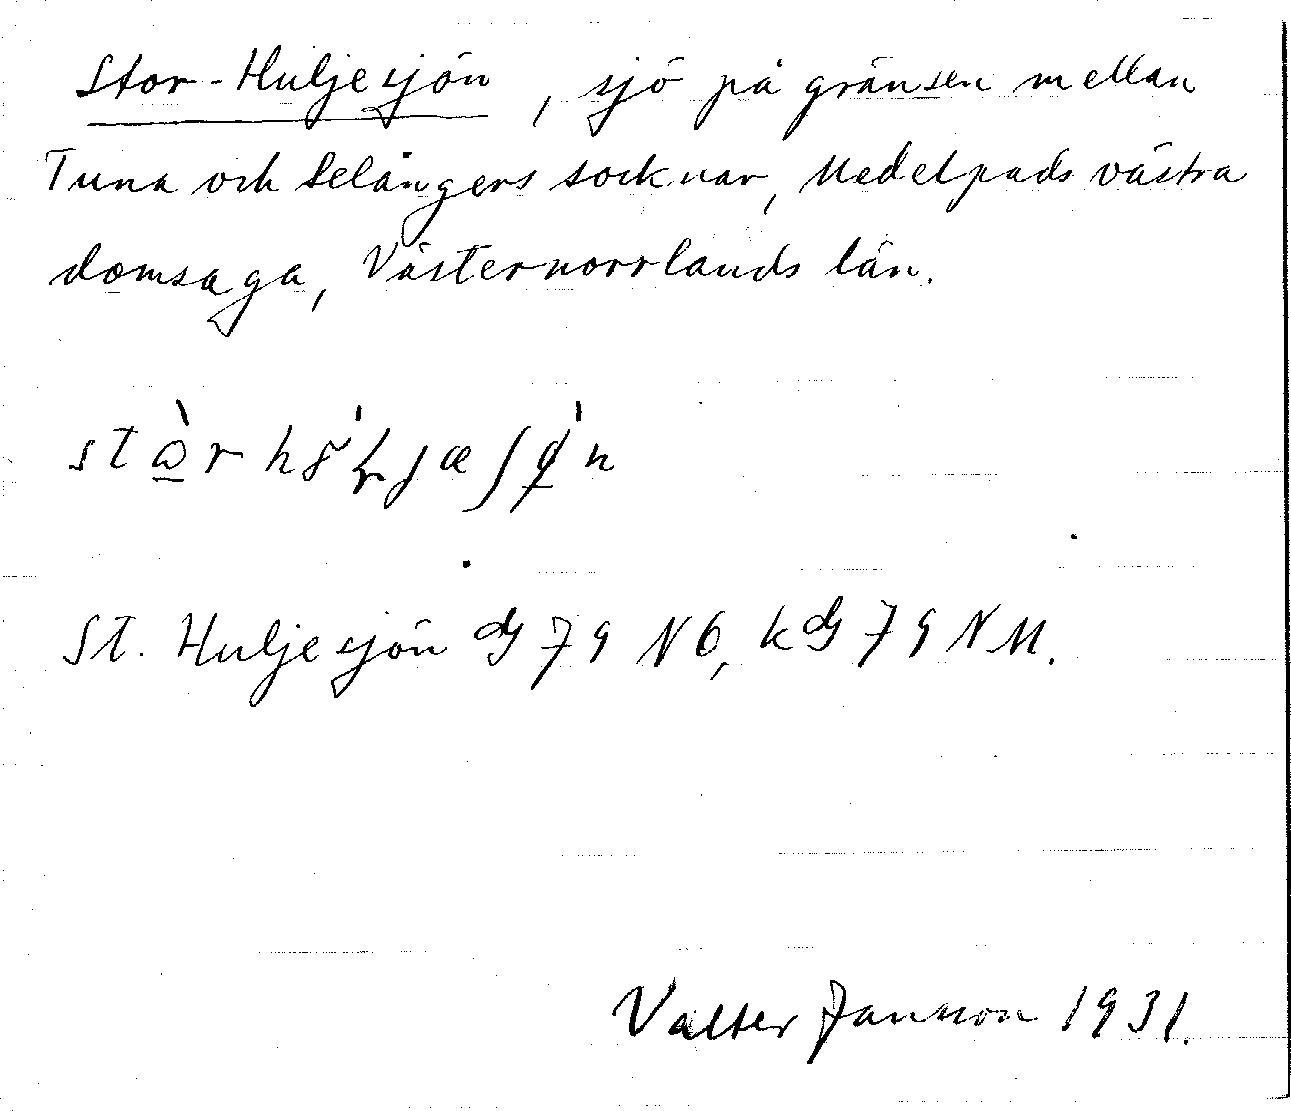 Stor-Huljesjön, sjö på gränsen mellan
Tuna och Selångers socknar, Medelpads västra
domsaga, Västernorrlands län.
St. Huljesjön 79 NÖ, 79 NM.
Valter Jansson 1931.